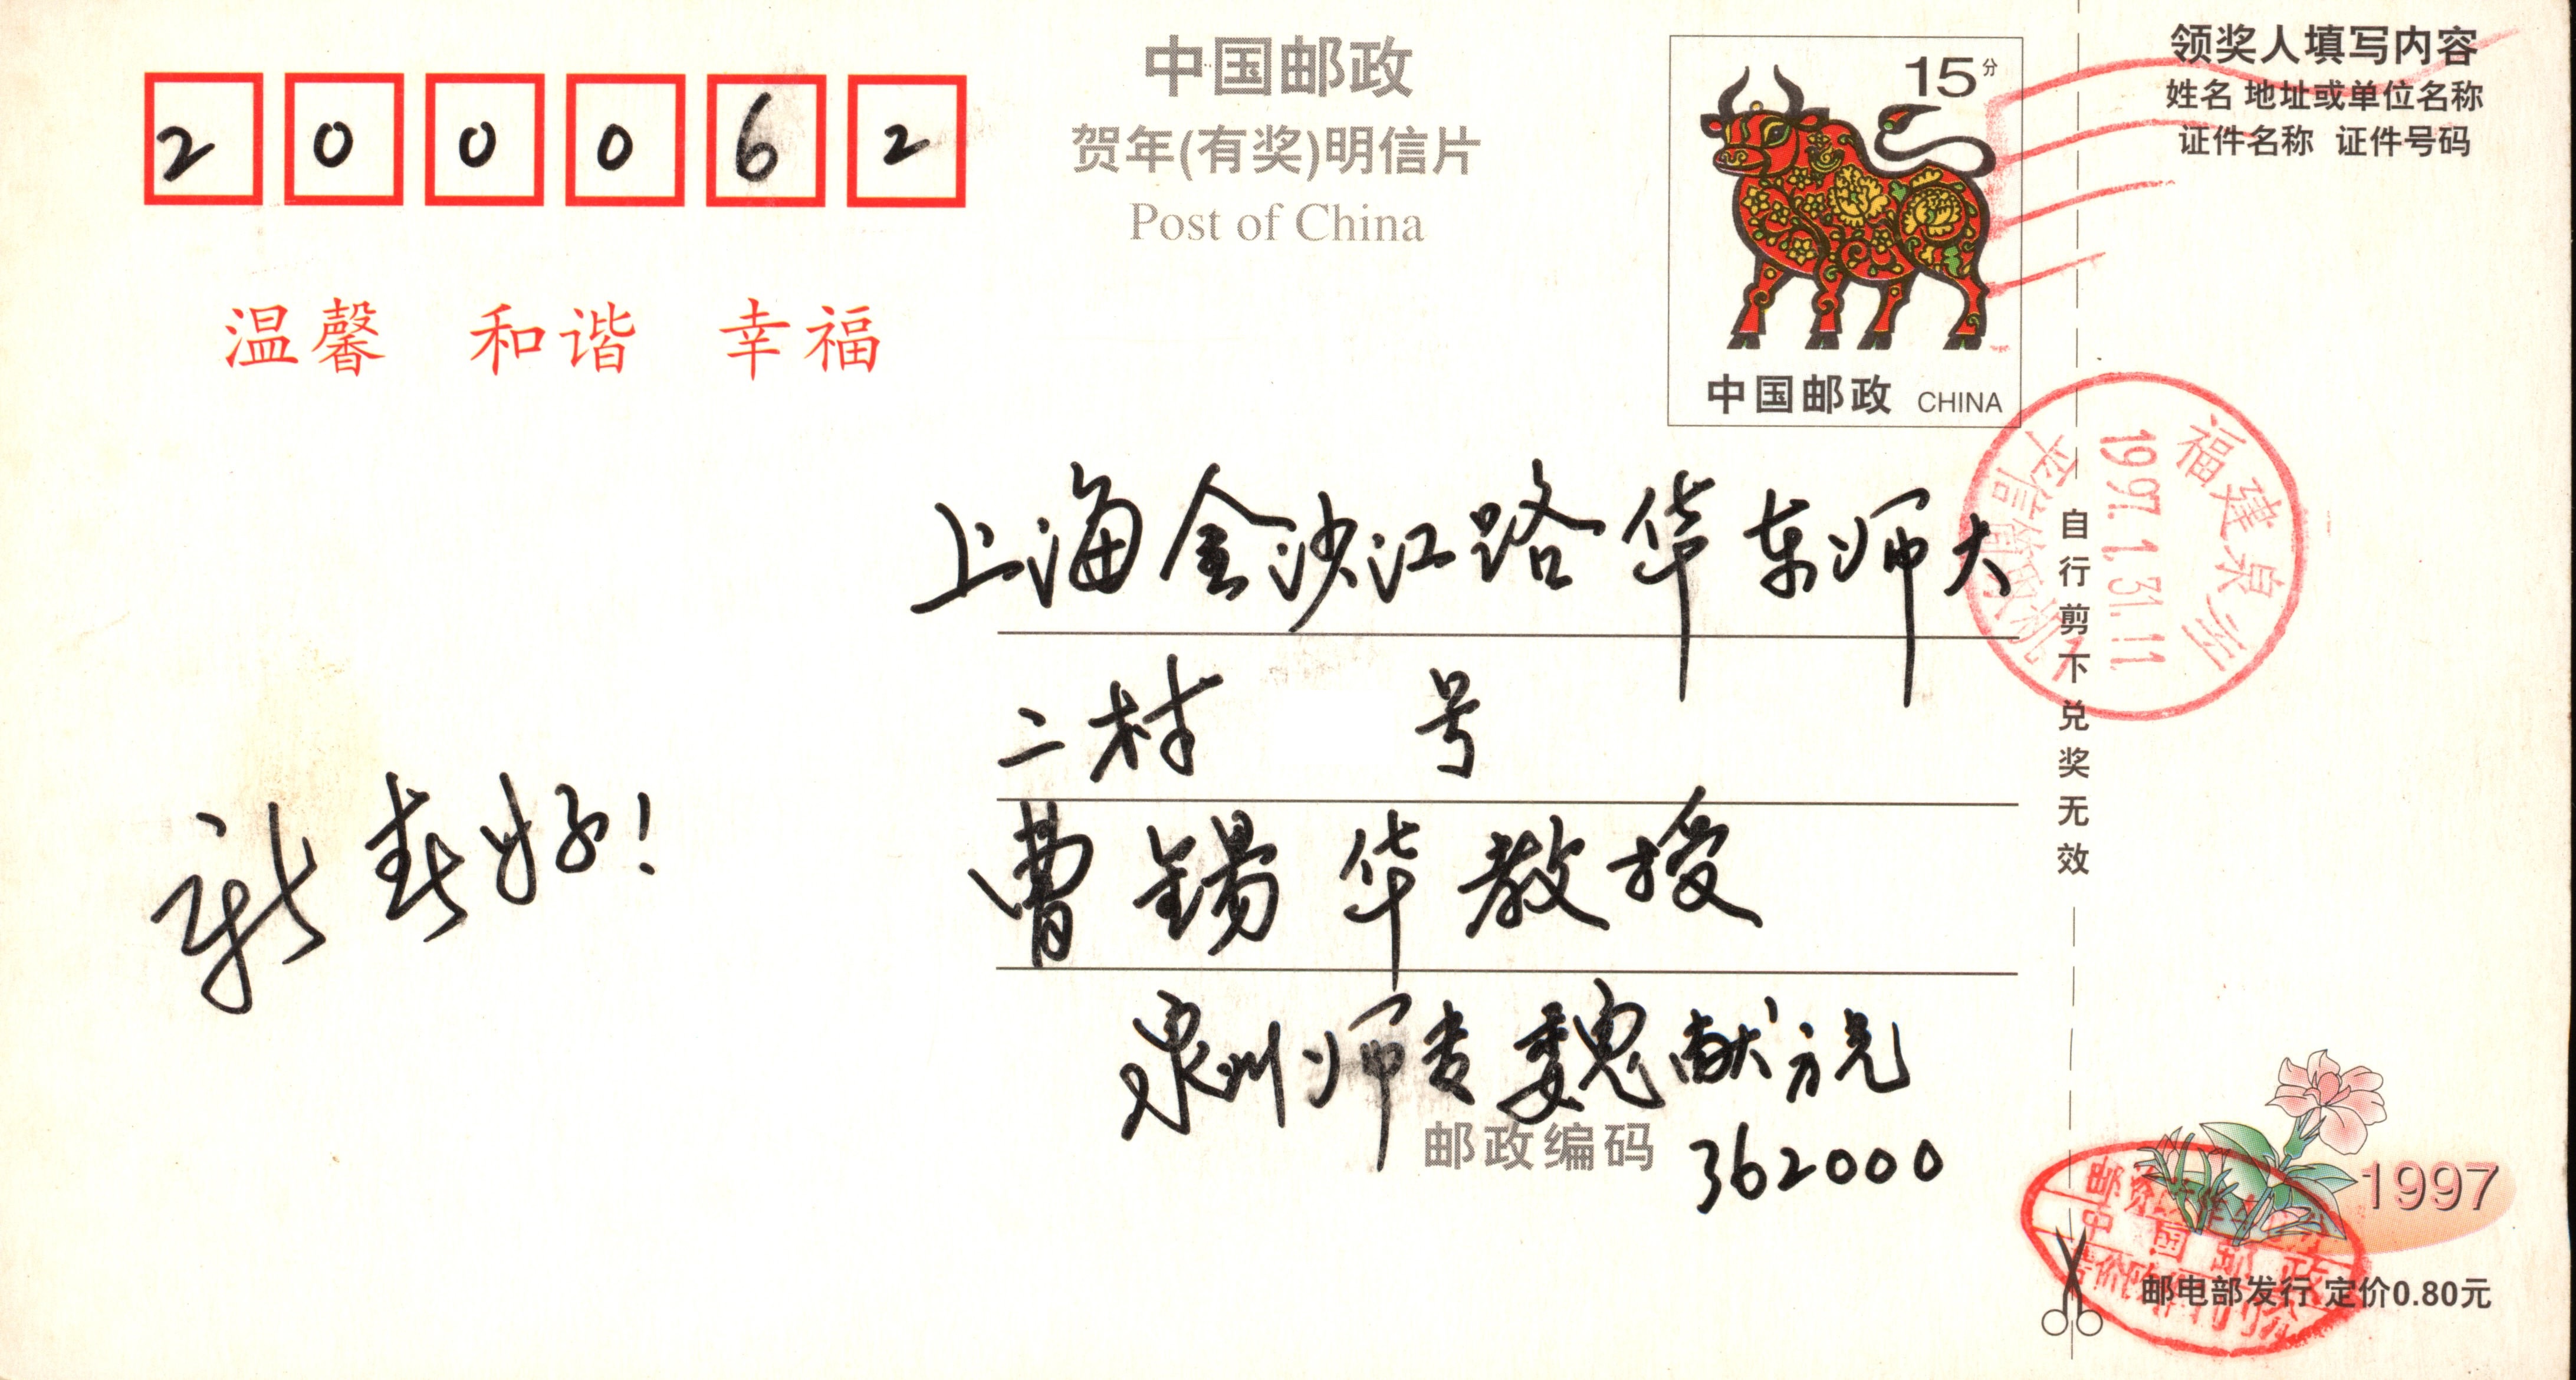 200062
中国邮政
贺年(有奖)明信片
Post of China
15分
中国邮政 CHINA
领奖人填写内容
姓名 地址或单位名称
证件名称 证件号码
温馨 和谐 幸福
福建泉州
1997.1.31.11
上海金沙江路华东师大
二村 号
曹锡华教授
泉州师专魏献
邮政编码 362000
新春好!
自行剪下兑奖无效
1997
中国邮政
邮电部发行 定价0.80元